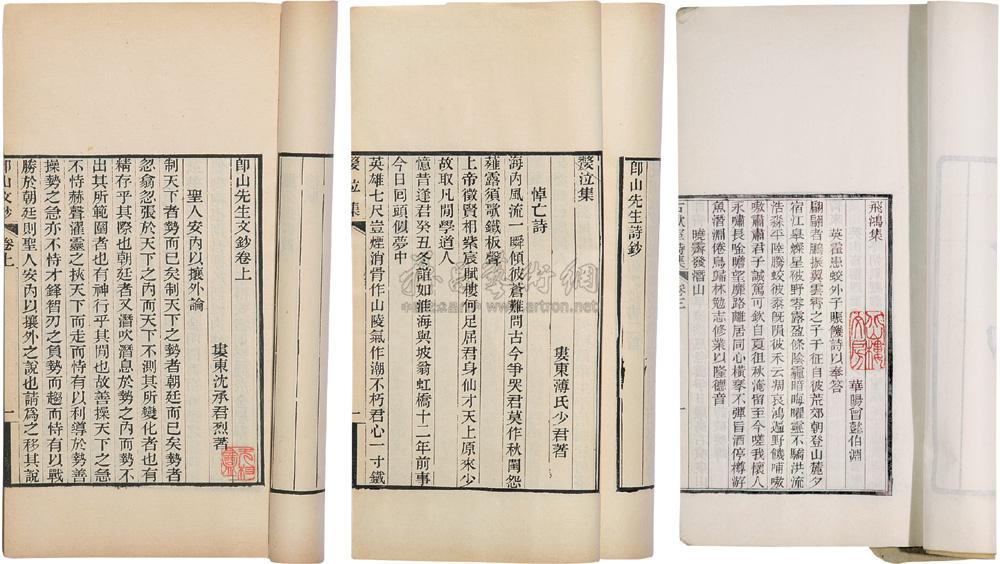 即山先生文鈔卷上
婁東沈承君烈著
聖人安內以攘外論
制天下者勢而已矣制天下之勢者朝廷而已矣勢者
忽翕忽張於天下之內而天下不測其所變化者也有
精存乎其際也朝廷者又潛吹潛息於勢之內而勢不
出其所範圍者也有神行乎其間也故善操天下之急
不恃赫聲濯靈之挾天下而走而恃有以利導於勢善
操勢之急亦不恃才鋒智刃之負勢而趨而恃有以戰
勝於朝廷則聖人安內以攘外之說也請爲之移其說
即山文鈔 卷上 一
即山先生詩鈔
嫠泣集
婁東薄氏少君著
悼亡詩
海內風流一瞬傾彼蒼難問古今爭哭君莫作秋閨怨
薤露須歌鐵板聲
上帝徵賢相紫宸賦樓何足屈君身仙才天上原來少
故取凡間學道人
憶昔逢君癸丑冬誼如淮海與坡翁虹橋十二年前事
今日回頭似夢中
英雄七尺豈煙消骨作山陵氣作潮不朽君心一寸鐵
嫠泣集 一
飛鴻集
華陽曾懿伯淵
英霍患蛟外子賑饑詩以奉答
翩翩者鵬振翼雲霄之子于征自彼荒郊朝登山麓夕
宿江皋爍星彼野零露盈條陰靄暗晦曜靈不驕洪流
浩淼平陸騰蛟彼黍旣隕彼禾云凋哀鴻遍野饑哺嗷
嗷肅肅君子誠篤可欽自夏徂秋淹留至今嗟我懷人
永嘯長唫瞻望靡路離居同心橫琴不彈旨酒停樽游
魚潛淵倦鳥歸林勉志修業以隆德音
曉霽發潛山
www.artron.net